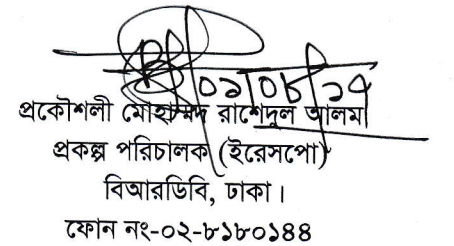 ০১/০৮/১৭
প্রকৌশলী মোহাম্মদ রাশেদুল আলম
প্রকল্প পরিচালক (ইরেসপো)
বিআরডিবি, ঢাকা।
ফোন নং-০২-৮১৮০১৪৪